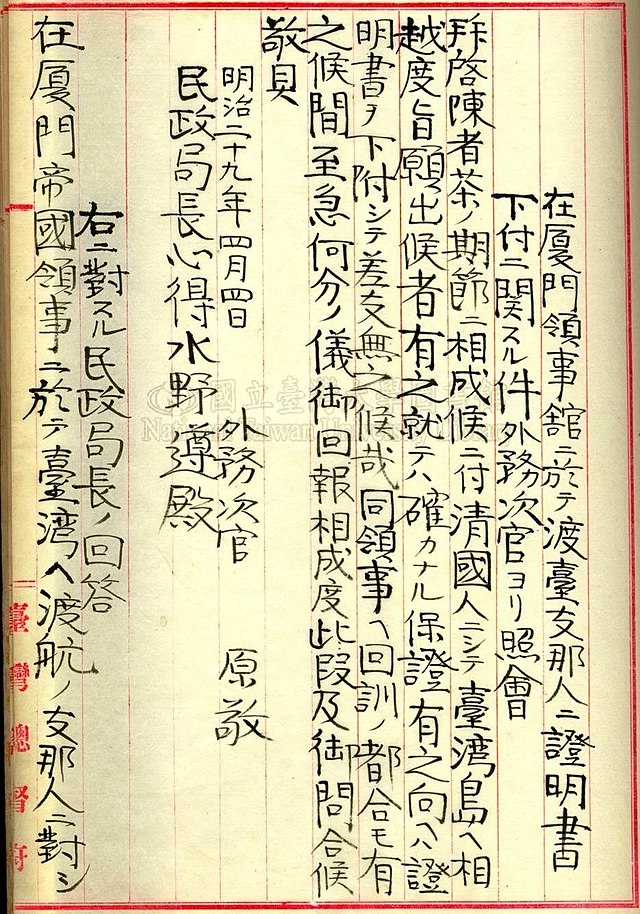 在厦門領事舘ニ於テ渡臺支那人ニ證明書
下付ニ関スル件外務次官ヨリ照會
拜啓陳者茶ノ期節ニ相成候ニ付清國人ニシテ臺湾島ヘ相
越度旨願出候者有之就テハ確カナル保證有之向ヘハ證
明書ヲ下附シテ差支無之候哉同領事ヘ回訓ノ都合モ有
之候間至急何分ノ儀御回報相成度此段及御問合候
敬具
明治二十九年四月四日 外務次官 原敬
民政局長心得水野遵殿
右ニ對スル民政局長ノ回答
在厦門帝國領事ニ於テ臺湾ヘ渡航ノ支那人ニ對シ
臺灣總督府
國立臺
National Taiwan University